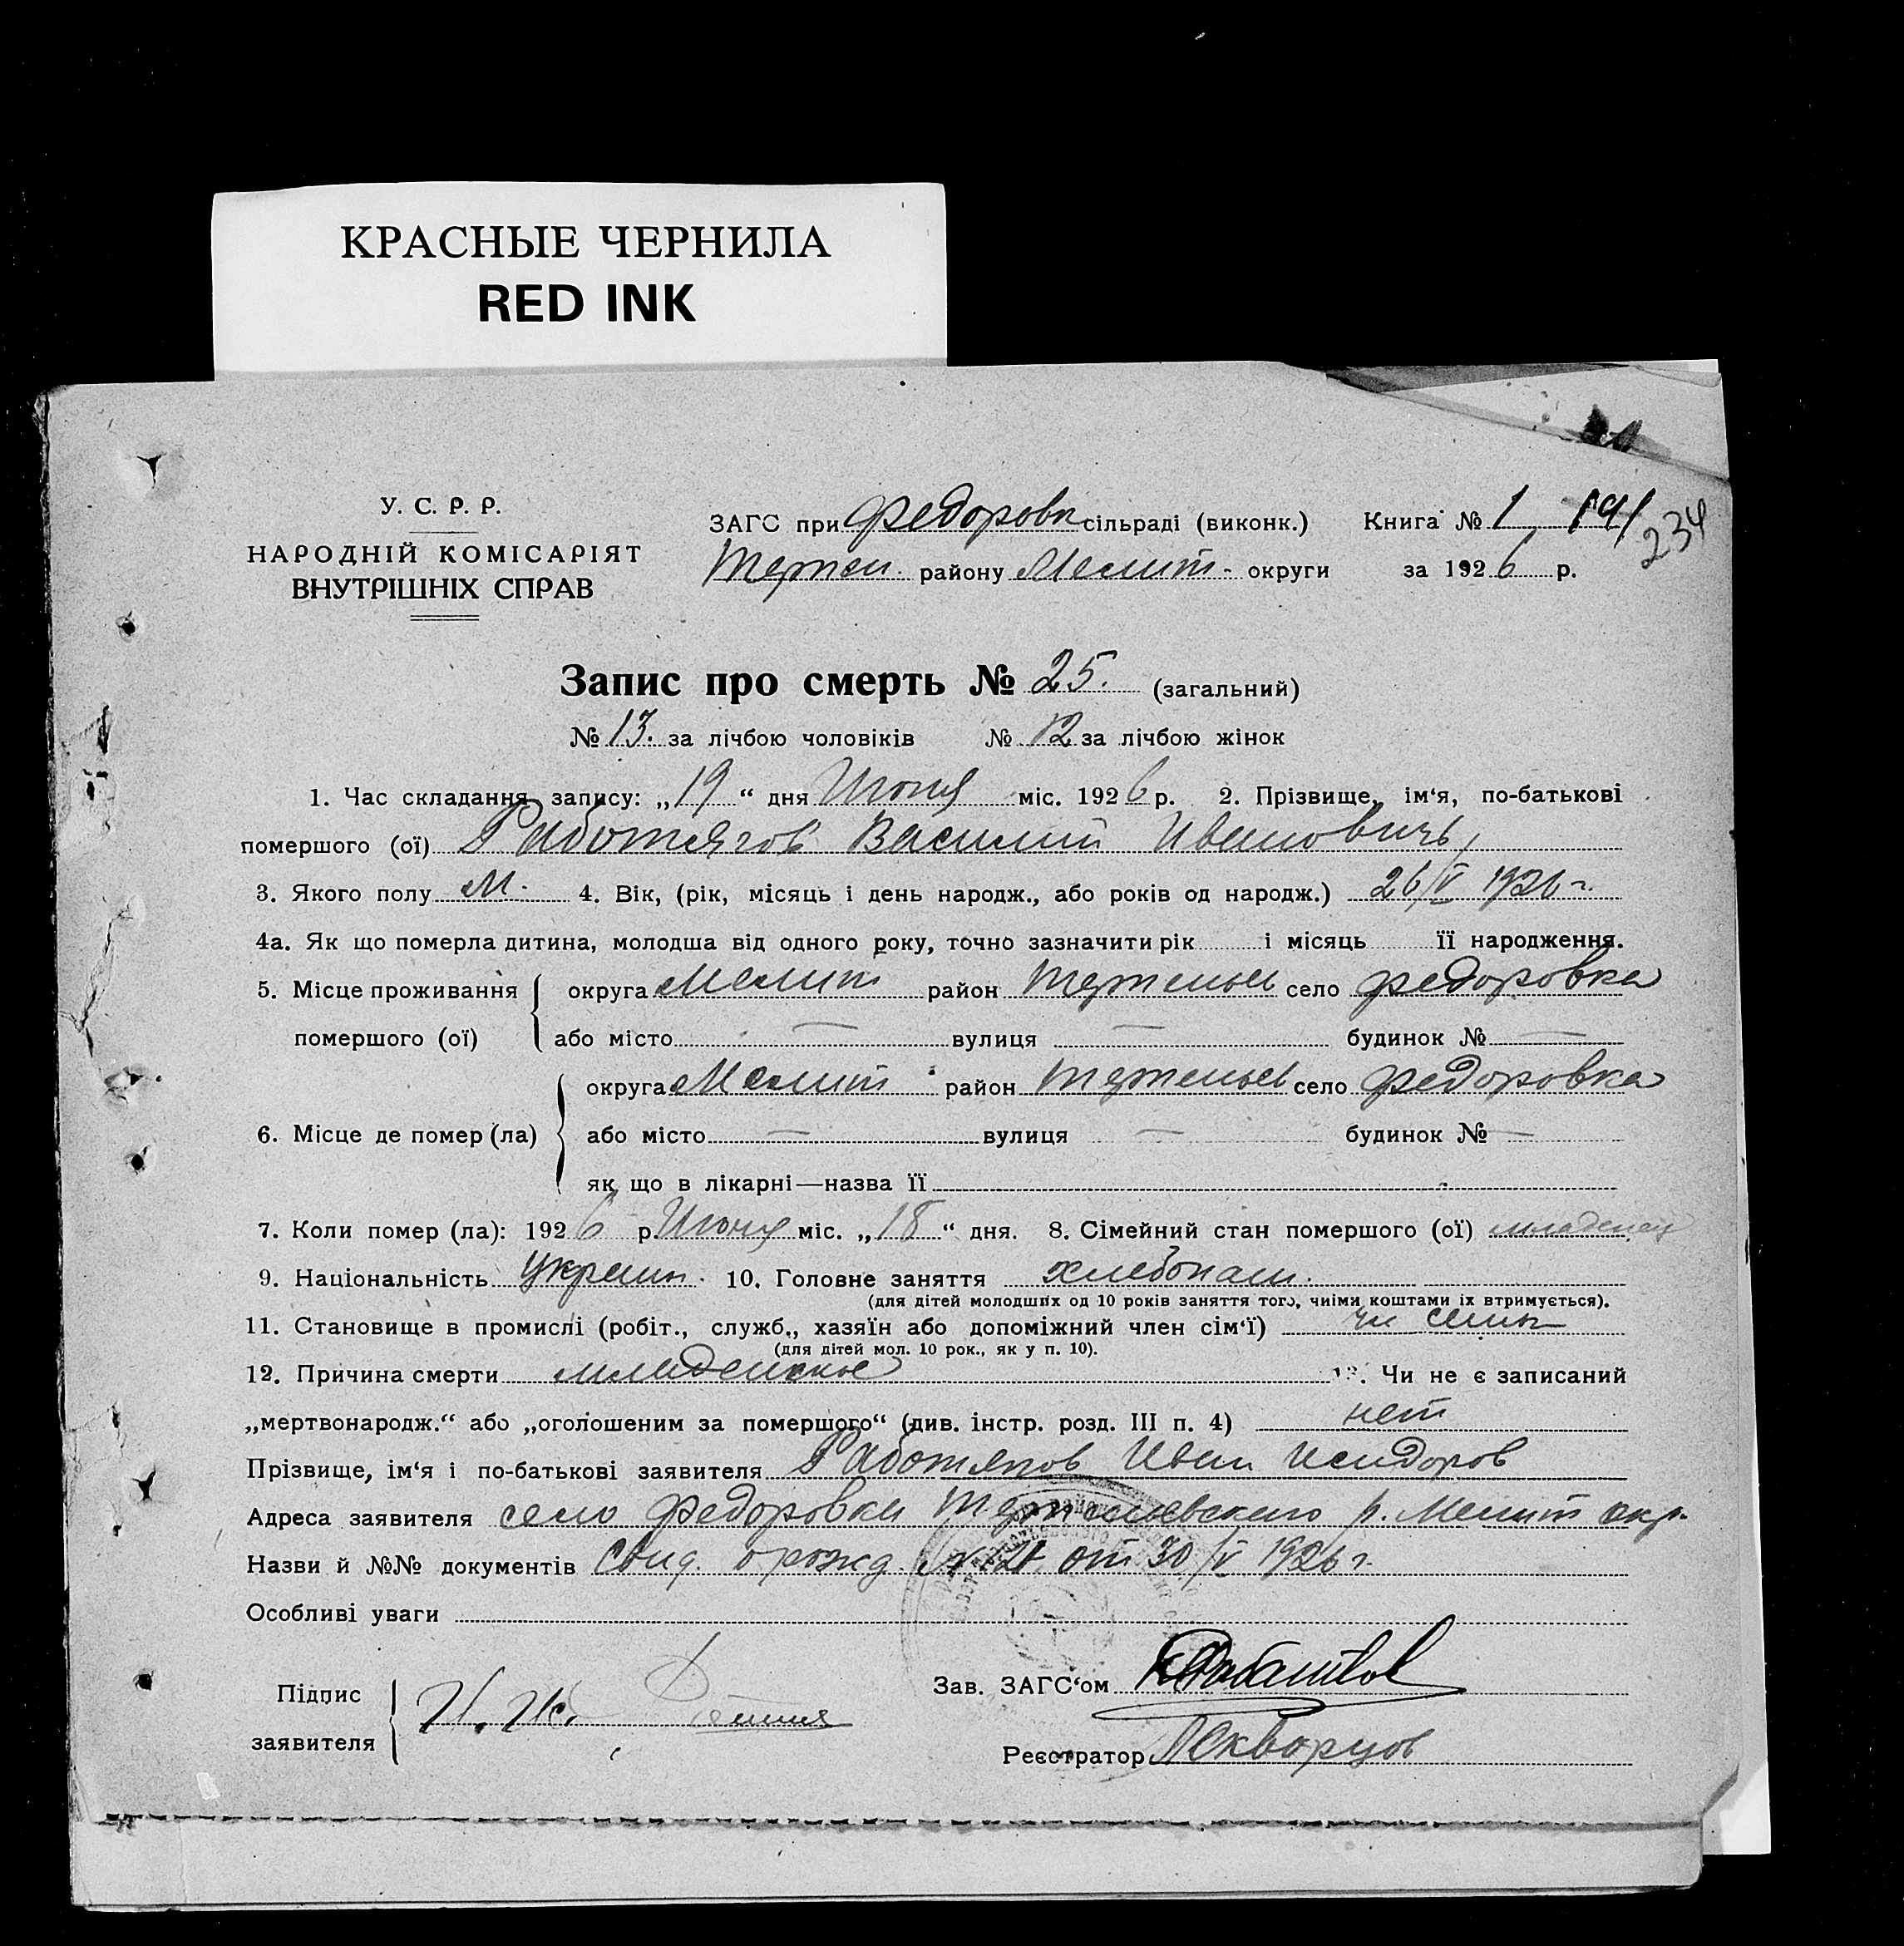 КРАСНЫЕ ЧЕРНИЛА
RED INK
У. С. Р. Р.
НАРОДНІЙ КОМІСАРІЯТ
ВНУТРІШНІХ СПРАВ
ЗАГС при Федоровк сільраді (виконк.) Книга № 1 191
234
району Мелит- округи за 1926 р.
Запис про смерть № 25. (загальний)
№ 13. за лічбою чоловіків № 12 за лічбою жінок
1. Час складання запису: „19“ дня Июня міс. 1926 р. 2. Прізвище, ім‘я, по-батькові
помершого (ої) Работягов Василий Ивановичь
3. Якого полу М. 4. Вік, (рік, місяць і день народж., або років од народж.) 26/V 1926 г.
4а. Як що померла дитина, молодша від одного року, точно зазначити рік і місяць її народження.
5. Місце проживання округа Мелит район село Федоровка
помершого (ої) або місто — вулиця — будинок № —
округа Мелит район село Федоровка
6. Місце де помер (ла) або місто — вулиця — будинок № —
як що в лікарні—назва її
7. Коли помер (ла): 1926 р Июня міс. „18“ дня. 8. Сімейний стан помершого (ої) младенец
9. Національність Украин. 10. Головне заняття хлебопаш.
(для дітей молодших од 10 років заняття того, чиїми коштами їх втримується).
11. Становище в промислі (робіт., служб., хазяїн або допоміжний член сім‘ї) чл семьи
(для дітей мол. 10 рок., як у п. 10).
12. Причина смерти младенское 13. Чи не є записаний
„мертвонародж.“ або „оголошеним за помершого“ (див. інстр. розд. III п. 4) нет
Прізвище, ім‘я і по-батькові заявителя Работягов Иван Исидоров
Адреса заявителя село Федоровка р. Мелит окр.
Назви й №№ документів Свид. о рожд. от 30/V 1926 г.
Особливі уваги
Підпис
заявителя
Зав. ЗАГС‘ом
Реєстратор Скворцов